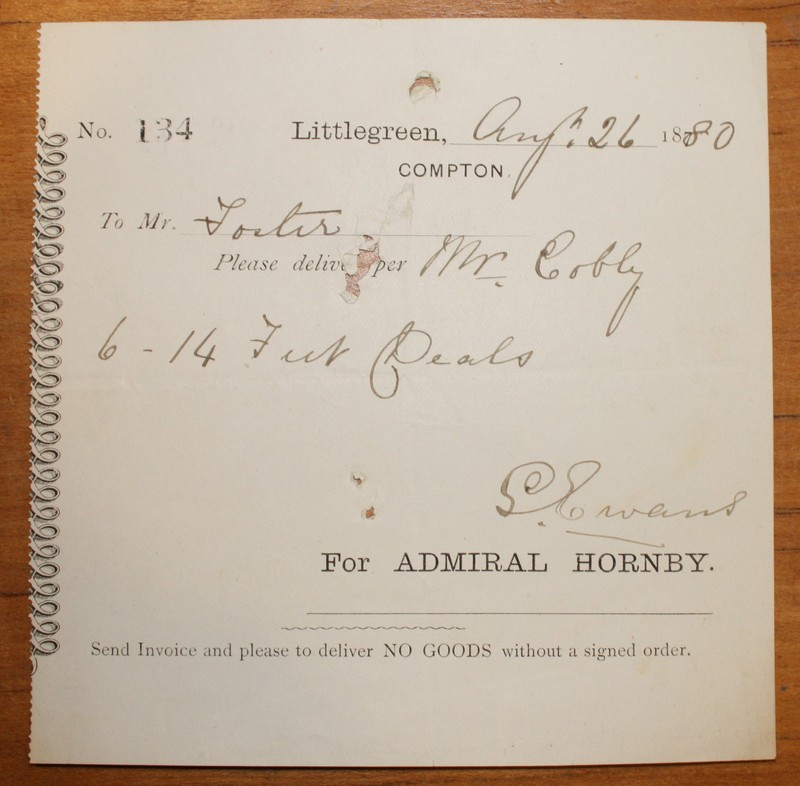 No. 134 Littlegreen, Augt. 26 1880
COMPTON.
To Mr. Foster
Please deliver per Mr. Cobby
6 - 14 Feet Deals
G. Evans
For ADMIRAL HORNBY.
Send Invoice and please to deliver NO GOODS without a signed order.